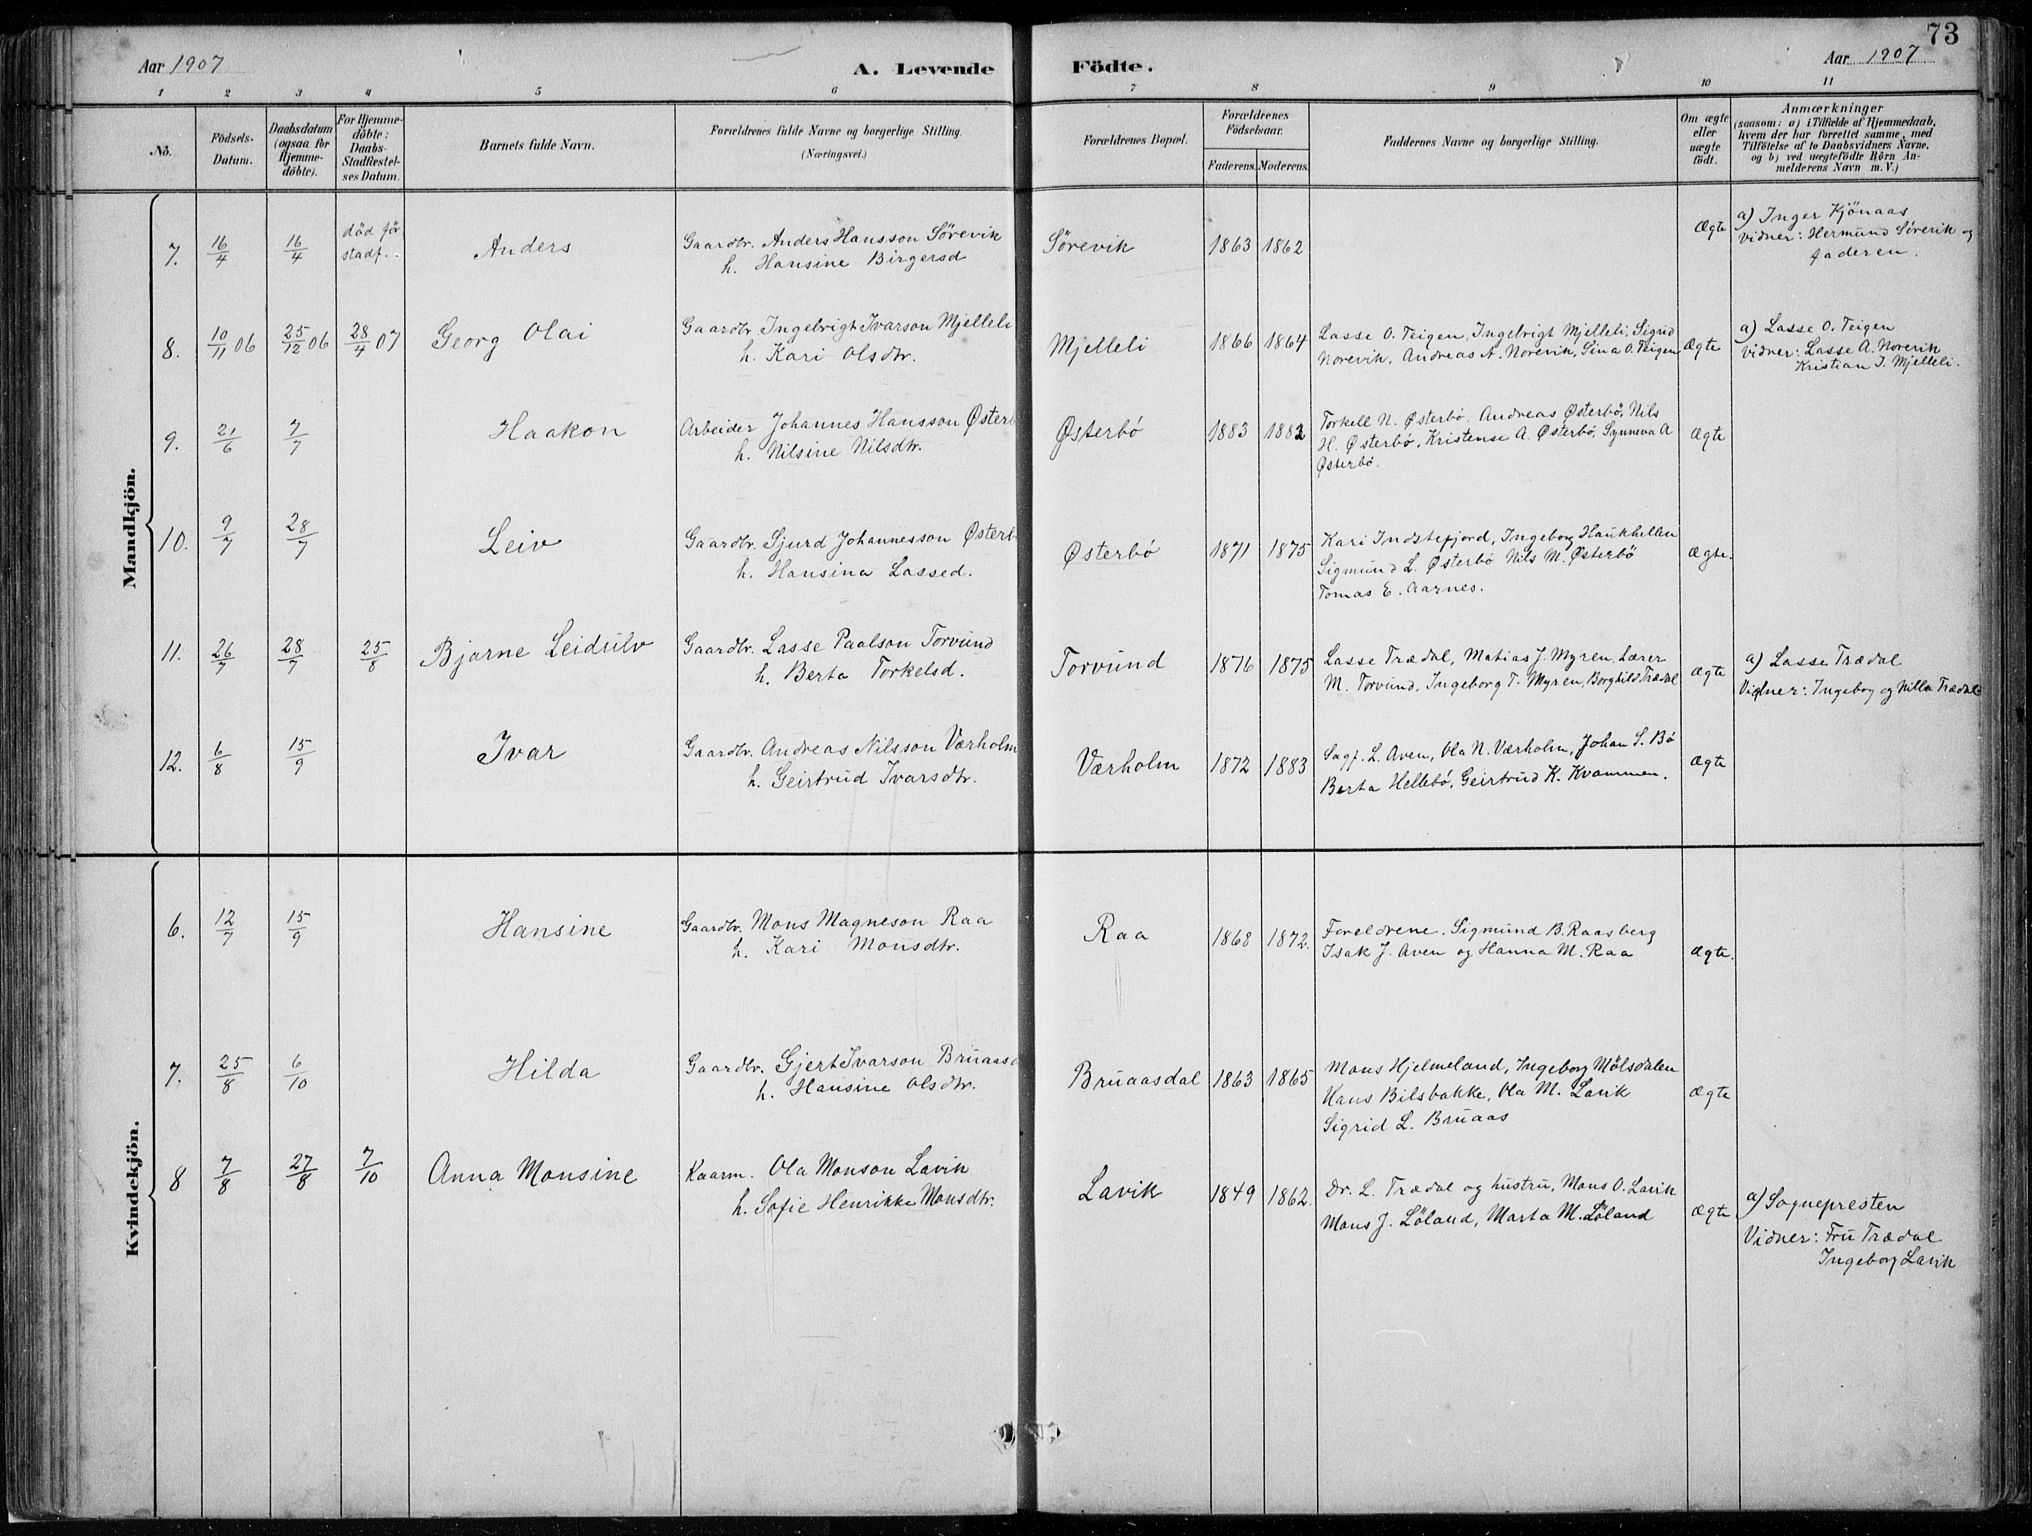 73
Aar 1907
A. Levende
Födte.
Aar 1907
1 2 3 4 5 6 7 8 9 10 11
No.
Födsels-
Datum.
Daabsdatum
(ogsaa for
Hjemme-
döbte).
For Hjemme-
döbte:
Daabs-
Stadfæstel-
ses Datum.
Barnets fulde Navn.
Forældrenes fulde Navne og borgerlige Stilling.
(Næringsvei.)
Forældrenes Bopæl.
Forældrenes
Födselsaar.
Faderens. Moderens.
Faddernes Navne og borgerlige Stilling.
Om ægte
eller
uægte
födt.
Anmærkninger
(saasom: a) i Tilfælde af Hjemmedaab,
hvem der har forrettet samme, med
Tilföielse af to Daabsvidners Navne,
og b) ved uægtefödte Börn An-
melderens Navn m. V.)
Mandkjön.
7. 16/4 16/4 död før
stadf.
Anders
Gaardbr. Anders Hansson Sørevik
h. Hansine Birgersd
Sørevik 1863 1862
Ægte
a) Inger Kjönaas
vidner: Hermund Sørevik og
faderen.
8. 10/11 06 25/12 06 28/4 07
Georg Olai
Gaardbr. Ingebrigt Ivarson Mjelleli
h. Kari Olsdtr.
Mjelleli 1866 1864
Lasse O. Teigen, Ingebrigt Mjelleli, Sigrid
Norevik, Andreas A. Norevik, Sina O. Teigen
Ægte
a) Lasse O. Teigen
Vidner: Lasse A. Norevik
Kristian I. Mjelleli.
9. 21/6 7/7
Haakon
Arbeider Johannes Hansson Østerb
h. Nilsine Nilsdtr.
Østerbö 1883 1882
Torkell N. Østerbö, Andreas Østerbö, Nils
H. Østerbø, Kristense A. Østerbö, Synneva A
Østerbö.
Ægte
10. 9/7 28/7
Leiv
Gaardbr. Sjurd Johannesson Østerb
h. Hansina Lassed.
Østerbö 1871 1875
Kari Indrtefjord, Ingeborg Haukhellen
Sigmund L. Østerbö Nils M. Østerbö
Tomas E. Aarnes.
Ægte.
11. 26/7 28/7 25/8
Bjarne Leidulv
Gaardbr. Lasse Paalson Torvund
h. Berta Torkelsd.
Torvund 1876 1875
Lasse Trædal, Matias J. Myren, Lærer
M. Torvund, Ingeborg T. Myren, Borghild Trædal
Ægte
a) Lasse Trædal
Vidner: Ingebog og Nilla Trædal
12. 6/8 15/9
Ivar
Gaardbr. Andreas Nilsson Værholm
h. Geirtrud Ivarsdtr.
Værholm 1872 1883
Sagf. L. Aven, Ola N. Værholm, Johan S. Bø
Berta Hellebö, Geirtrud K. Kvammen.
Ægte
Kvindekjön.
6. 12/7 15/9
Hansine
Gaardbr. Mons Magneson Raa
h. Kari Monsdtr.
Raa 1868 1872.
Foreldrene. Sigmund B. Raasberg
Isak J. Aven og Hanna M. Raa
Ægte.
7. 25/8 6/10
Hilda
Gaardbr. Gjert Ivarson Bruaasd
h. Hansine Olsdtr.
Bruaasdal 1863 1865
Mons Hjelmeland, Ingeborg Mölsdalen
Hans Bilsbakke, Ola M. Lavik
Sigrid L. Bruaas
Ægte
8 7/8 27/8 7/10
Anna Monsine
Kaarm. Ola Monson Lavik
h. Sofie Henrikke Monsdtr.
Lavik 1849 1862.
Dr. L. Trædal og hustru, Mons O. Lavik
Mons J. Löland, Marta M. Löland
Ægte
a) Sognepresten
Vidner: Fru Trædal
Ingeborg Lavik